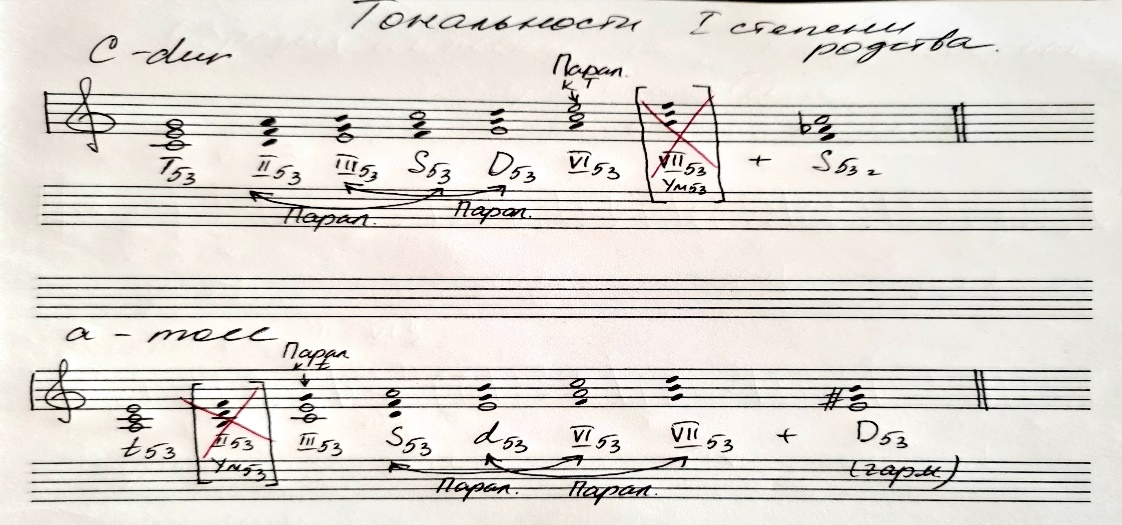 Тональности I степени
родства.
C-dur
Парал.
к T
T53 II53 III53 S53 D53 VI53 VII53 + S53 г
Ум53
Парал. Парал.
a-moll
Парал
к t
t53 II53 III53 S53 d53 VI53 VII53 + D53
Ум53 (гарм)
Парал. Парал.